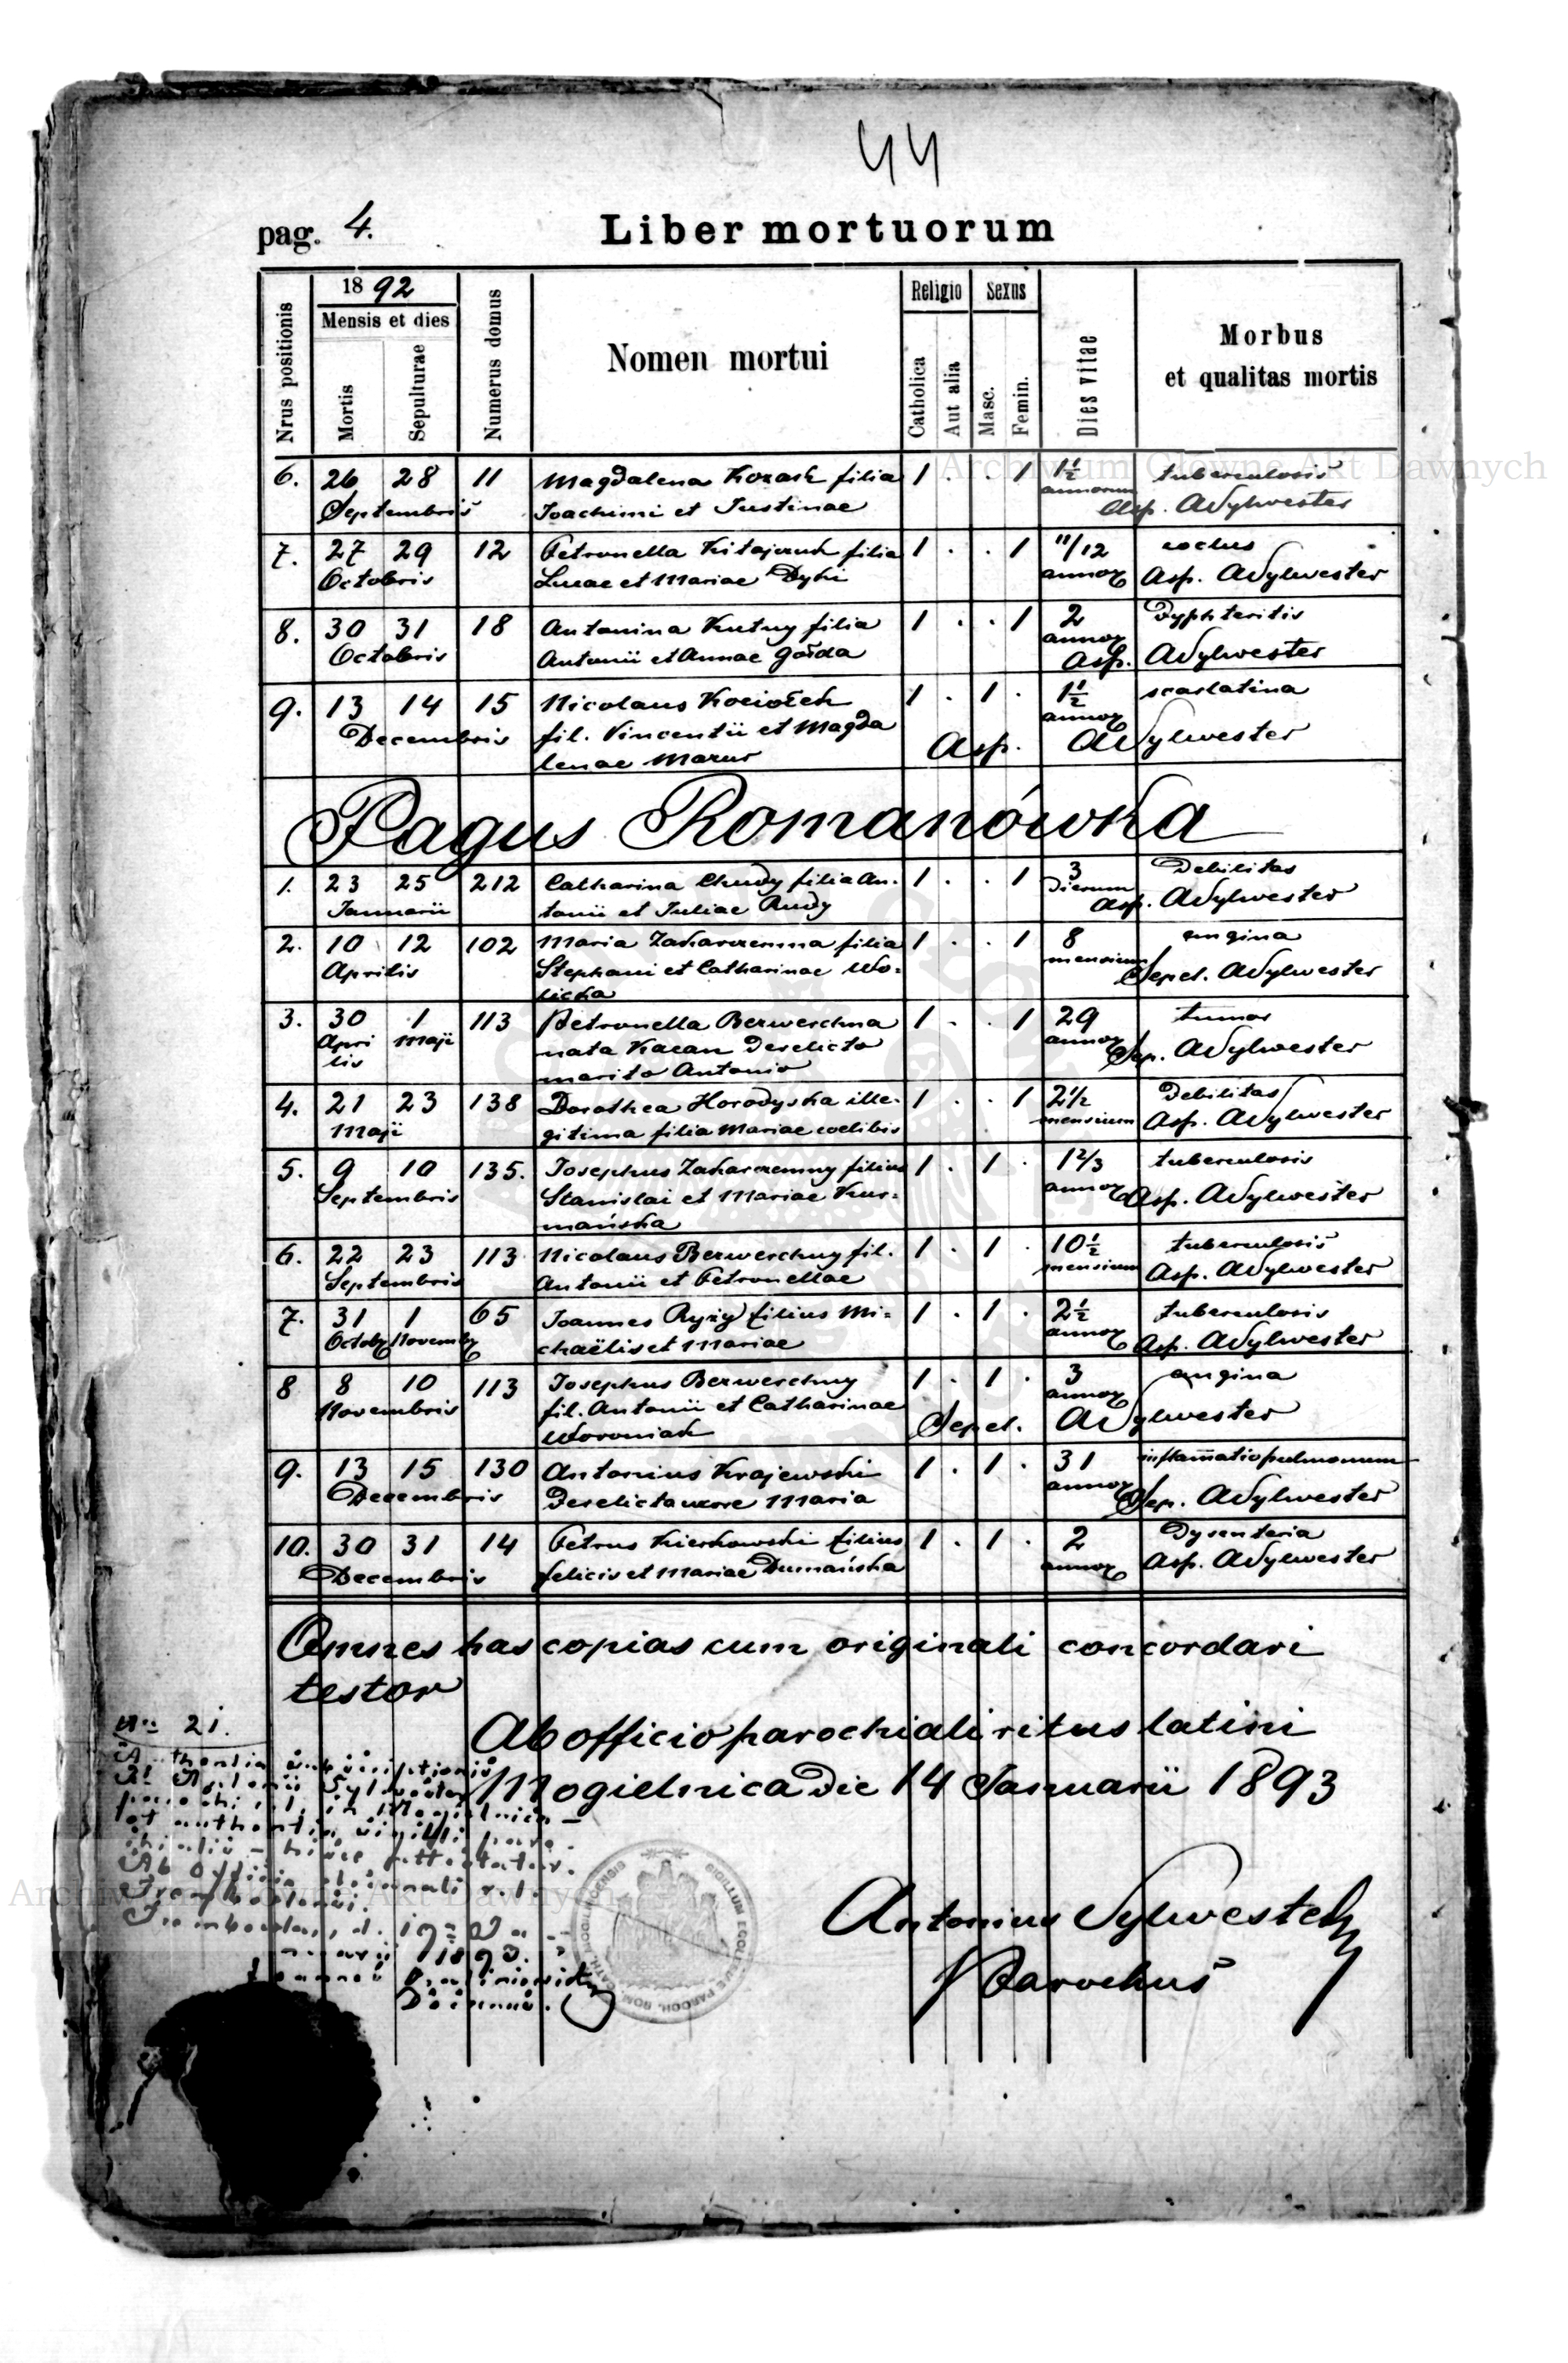 44
pag. 4.
Liber mortuorum
Nrus positionis
1892
Mensis et dies
Mortis
Sepulturae
Numerus domus
Nomen mortui
Religio
Catholica
Aut alia
Sexus
Masc.
Femin.
Dies vitae
Morbus
et qualitas mortis
6. 26 28 11 Magdalena Kozak filia 1 . . 1 1½ tuberculosis
Septembris Joachimi et Justinae annorum Asp. ASylwester
7. 27 29 12 Petronella Kitajczuk filia 1 . . 1 11/12
Octobris Lucae et Mariae Dyki annor Asp. ASylwester
8. 30 31 18 Antonina Kutny filia 1 . . 1 2 Dyphteritis
Octobris Antonii et Annae Gołda annor Asp. ASylwester
9. 13 14 15 Nicolaus Kociołek 1 . 1 . 1½ scarlatina
Decembris fil. Vincentii et Magda annor
lenae Mazur Asp. ASylwester
Pagus Romanówka
1. 23 25 212 Catharina Chudy filia An- 1 . . 1 3 Debilitas
Januarii tonii et Juliae Rudy dierum Asp. ASylwester
2. 10 12 102 Maria Zaharczemna filia 1 . . 1 8 angina
Aprilis Stephani et Catharinae Wo- mensium Sepel. ASylwester
licka
3. 30 1 113 Petronella Berwerchna 1 . . 1 29 tumor
Apri Maji nata Kaczan derelicto annor Sep. ASylwester
lis marito Antonio
4. 21 23 138 Dorothea Horodyska ille- 1 . . 1 2½ Debilitas
Maji gitima filia Mariae coelibis mensium Asp. ASylwester
5. 9 10 135. Josephus Zaharczemny filius 1 . 1 . 1⅔ tuberculosis
Septembris Stanislai et Mariae Kur- annor Asp. ASylwester
mańska
6. 22 23 113 Nicolaus Berwerchny fil. 1 . 1 . 10½ tuberculosis
Septembris Antonii et Petronellae mensium Asp. ASylwester
7. 31 1 65 Joannes Ryży filius Mi- 1 . 1 . 2½ tuberculosis
Octobr Novembr chaëlis et Mariae annor Asp. ASylwester
8 8 10 113 Josephus Berwerchny 1 . 1 . 3 angina
Novembris fil. Antonii et Catharinae annor
Woroniak Sepel. ASylwester
9. 13 15 130 Antonius Krajewski 1 . 1 . 31 inflam̅atio pulmonum
Decembris derelicta uxore Maria annor Sep. ASylwester
10. 30 31 14 Petrus Kierkowski filius 1 . 1 . 2 Dysenteria
Decembris Felicis et Mariae Dumańska annor Asp. ASylwester
Omnes has copias cum originali concordari
testor
Ab officio parochiali ritus latini
Mogielnica die 14 Januarii 1893
Antonius Sylwester
Parochus
Nro 21.
Sylwester
parochi r.l. in Mogielnica
Ab Officio decanali r.l.
Trembowla, d.
1893.
Decanus.
SIGILLUM ECCLESIAE PAROCH. ROM. CATH.
Archiwum Główne Akt Dawnych
Archiwum Główne Akt Dawnych